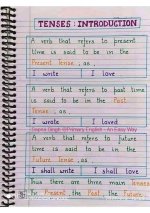 TENSES : INTRODUCTION
A verb that refers to present
time is said to be in the
Present Tense, as,
I write I love
A verb that refers to past time
is said to be in the Past
Tense, as,
I wrote I loved
A verb that refers to future
time is said to be in the
Future Tense, as,
I shall write I shall love
Thus there are three main tenses
The Present, the Past, the Future